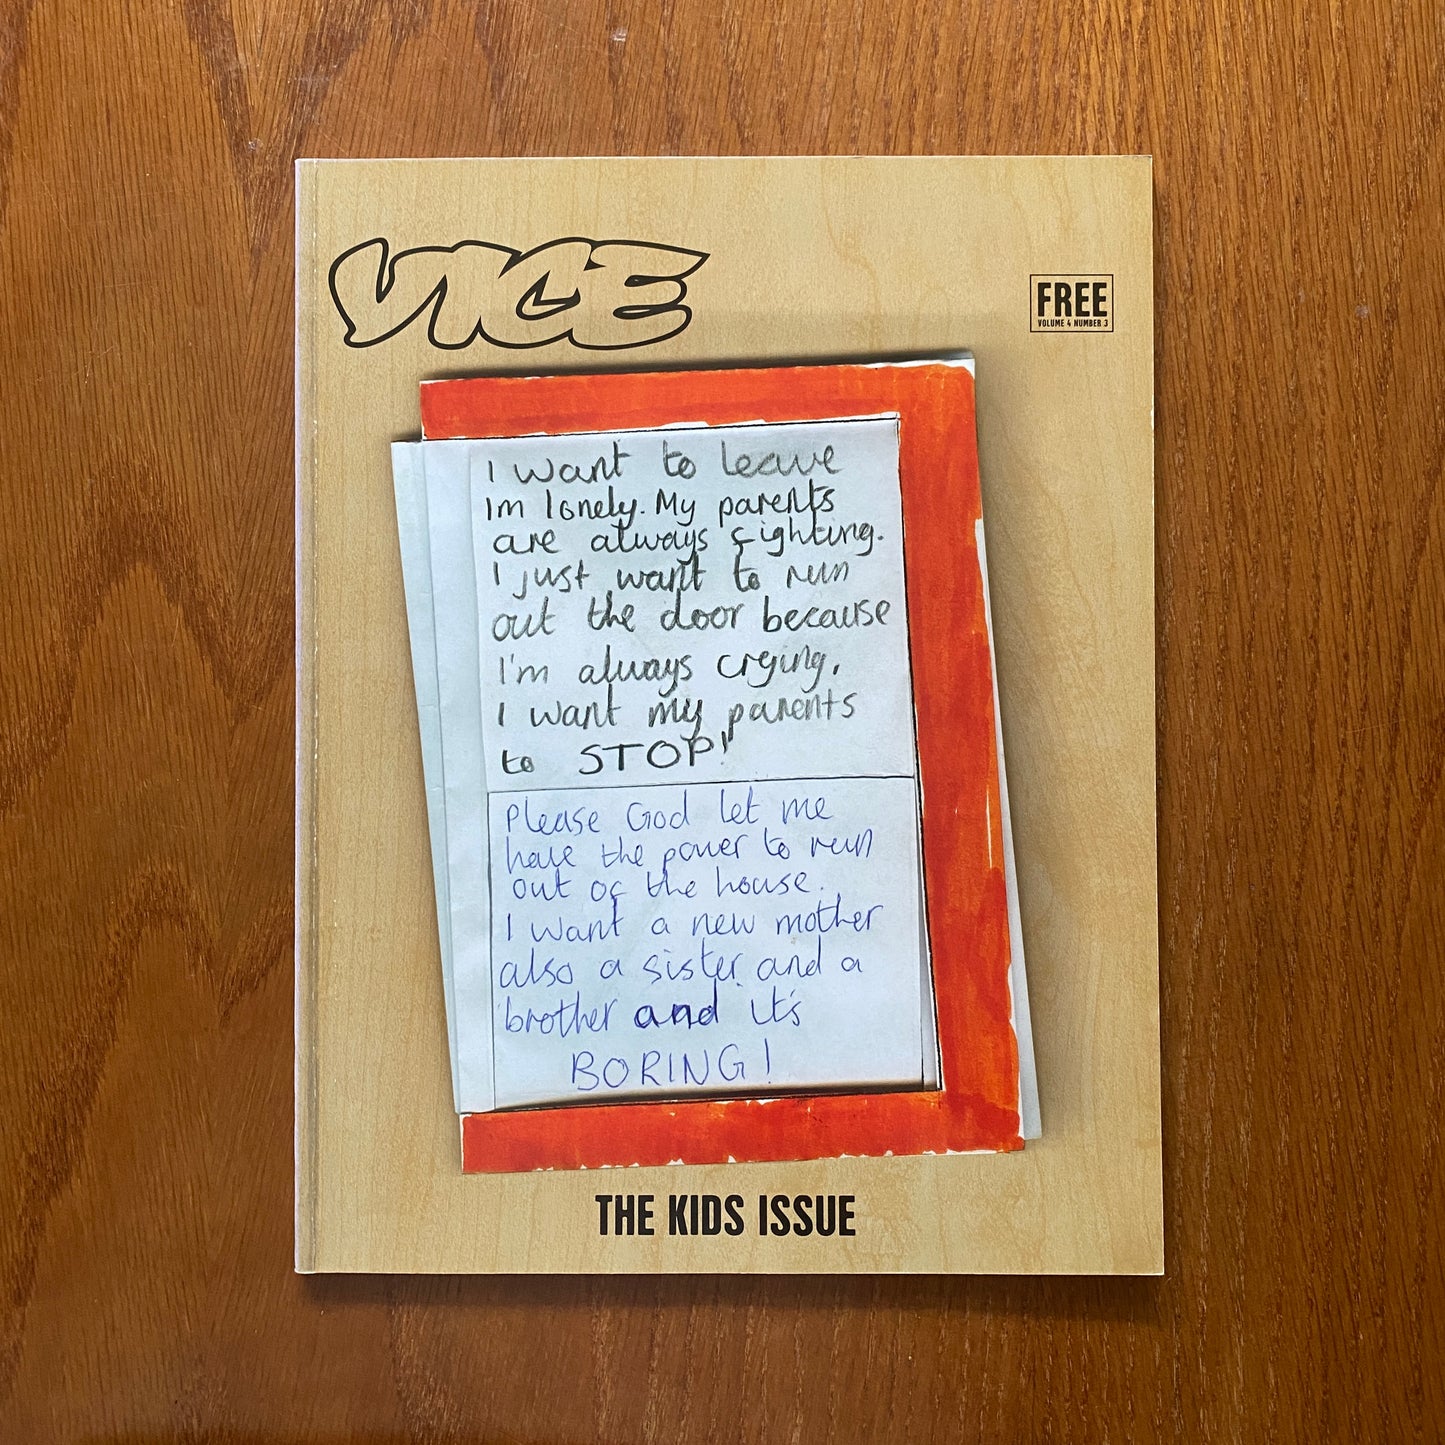 VICE
FREE
VOLUME 4 NUMBER 3
I want to leave
Im lonely. My parents
are always fighting.
I just want to run
out the door because
I'm always crying,
I want my parents
to STOP!
Please God let me
have the power to run
out of the house.
I want a new mother
also a sister and a
brother and it's
BORING!
THE KIDS ISSUE